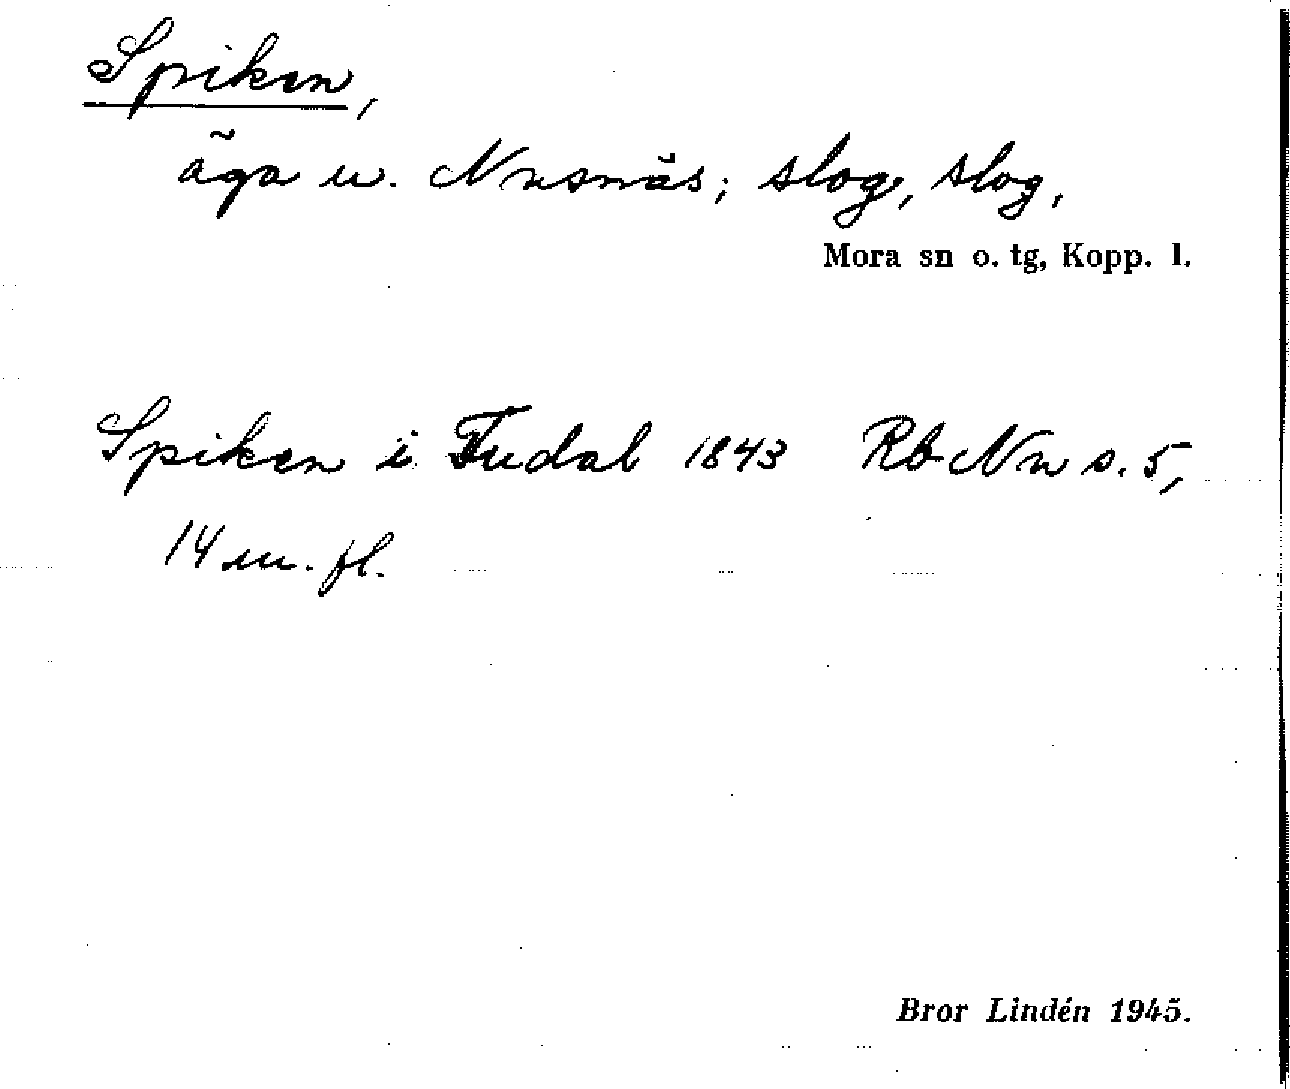 Spiken,
äga u. Nusnäs; slog, slog,
Mora sn o. tg, Kopp. l.
Spiken i Fudal 1843 Rb Nu s. 5,
14 m. fl.
Bror Lindén 1945.